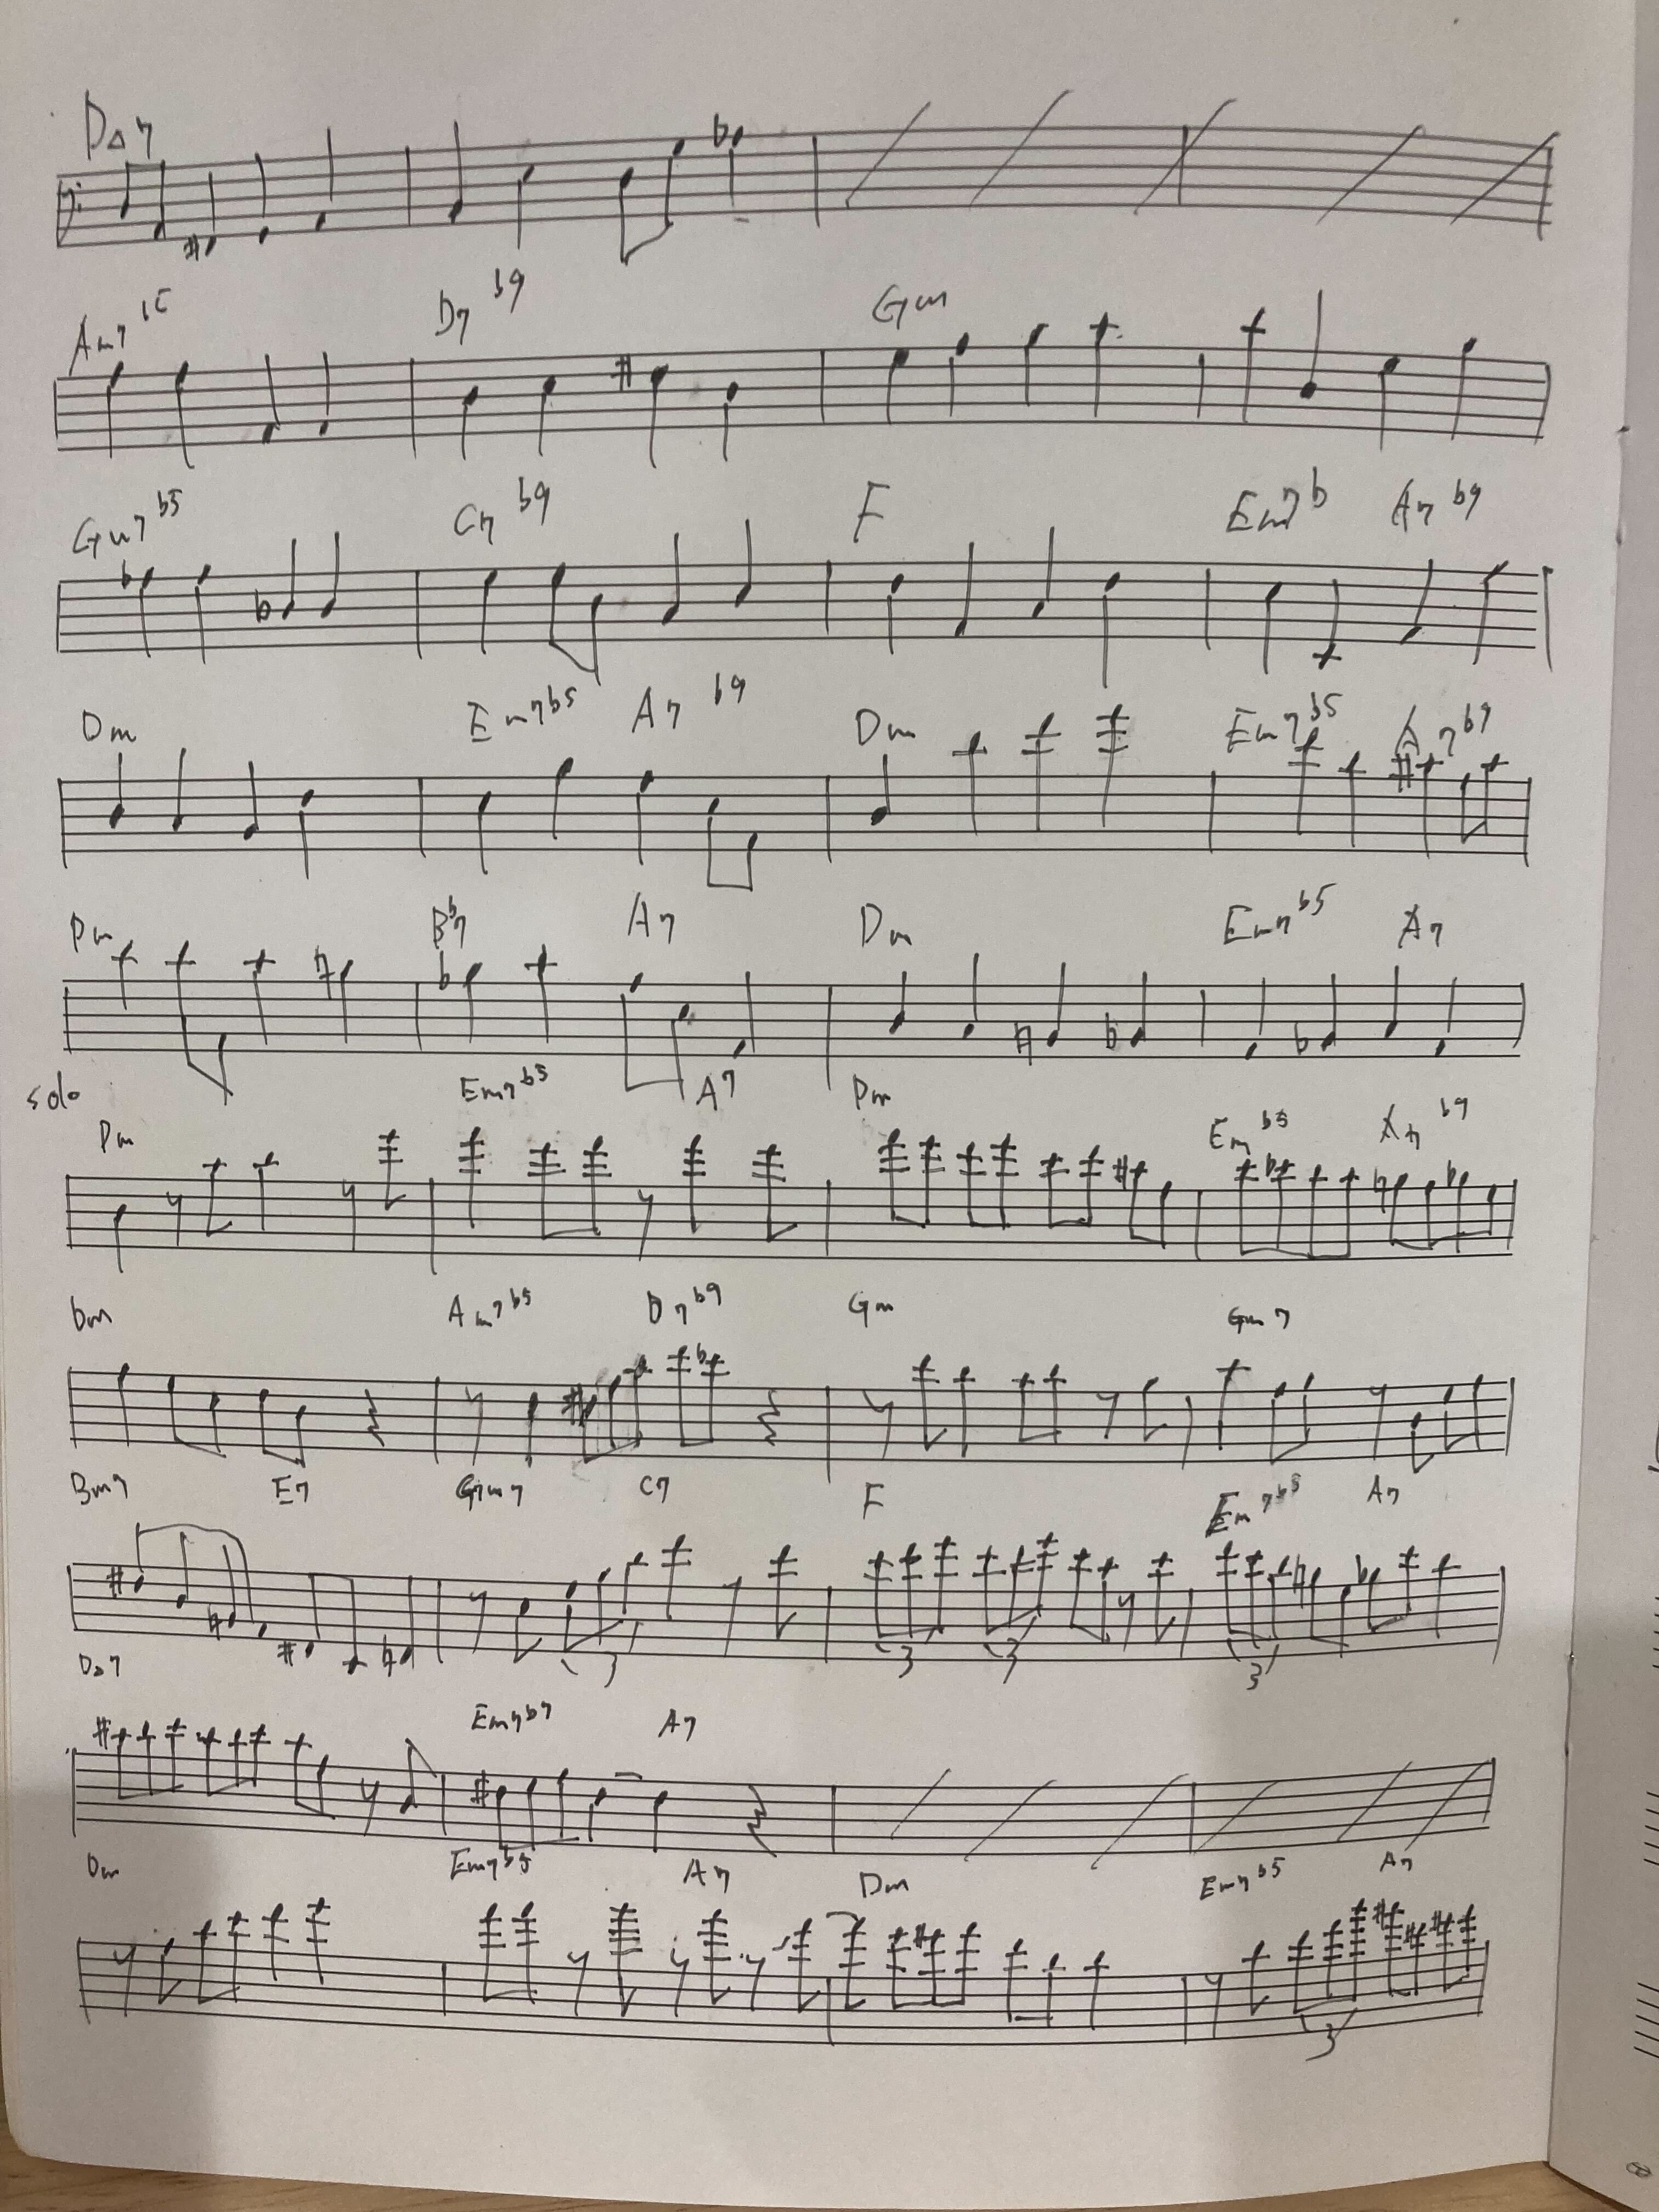 D△7
Am7 D7 b9 Gm
Gm7 b5 C7 b9 F Em7b A7 b9
Dm Em7b5 A7 b9 Dm Em7b5 A7b9
Dm Bb7 A7 Dm Em7b5 A7
solo Dm Em7b5 A7 Dm Em b5 A7 b9
Dm Am7b5 D7b9 Gm Gm7
Bm7 E7 Gm7 C7 F Em7b5 A7
3 3 3 3
D△7 Em7b7 A7
Dm Em7b5 A7 Dm Em7b5 A7
3